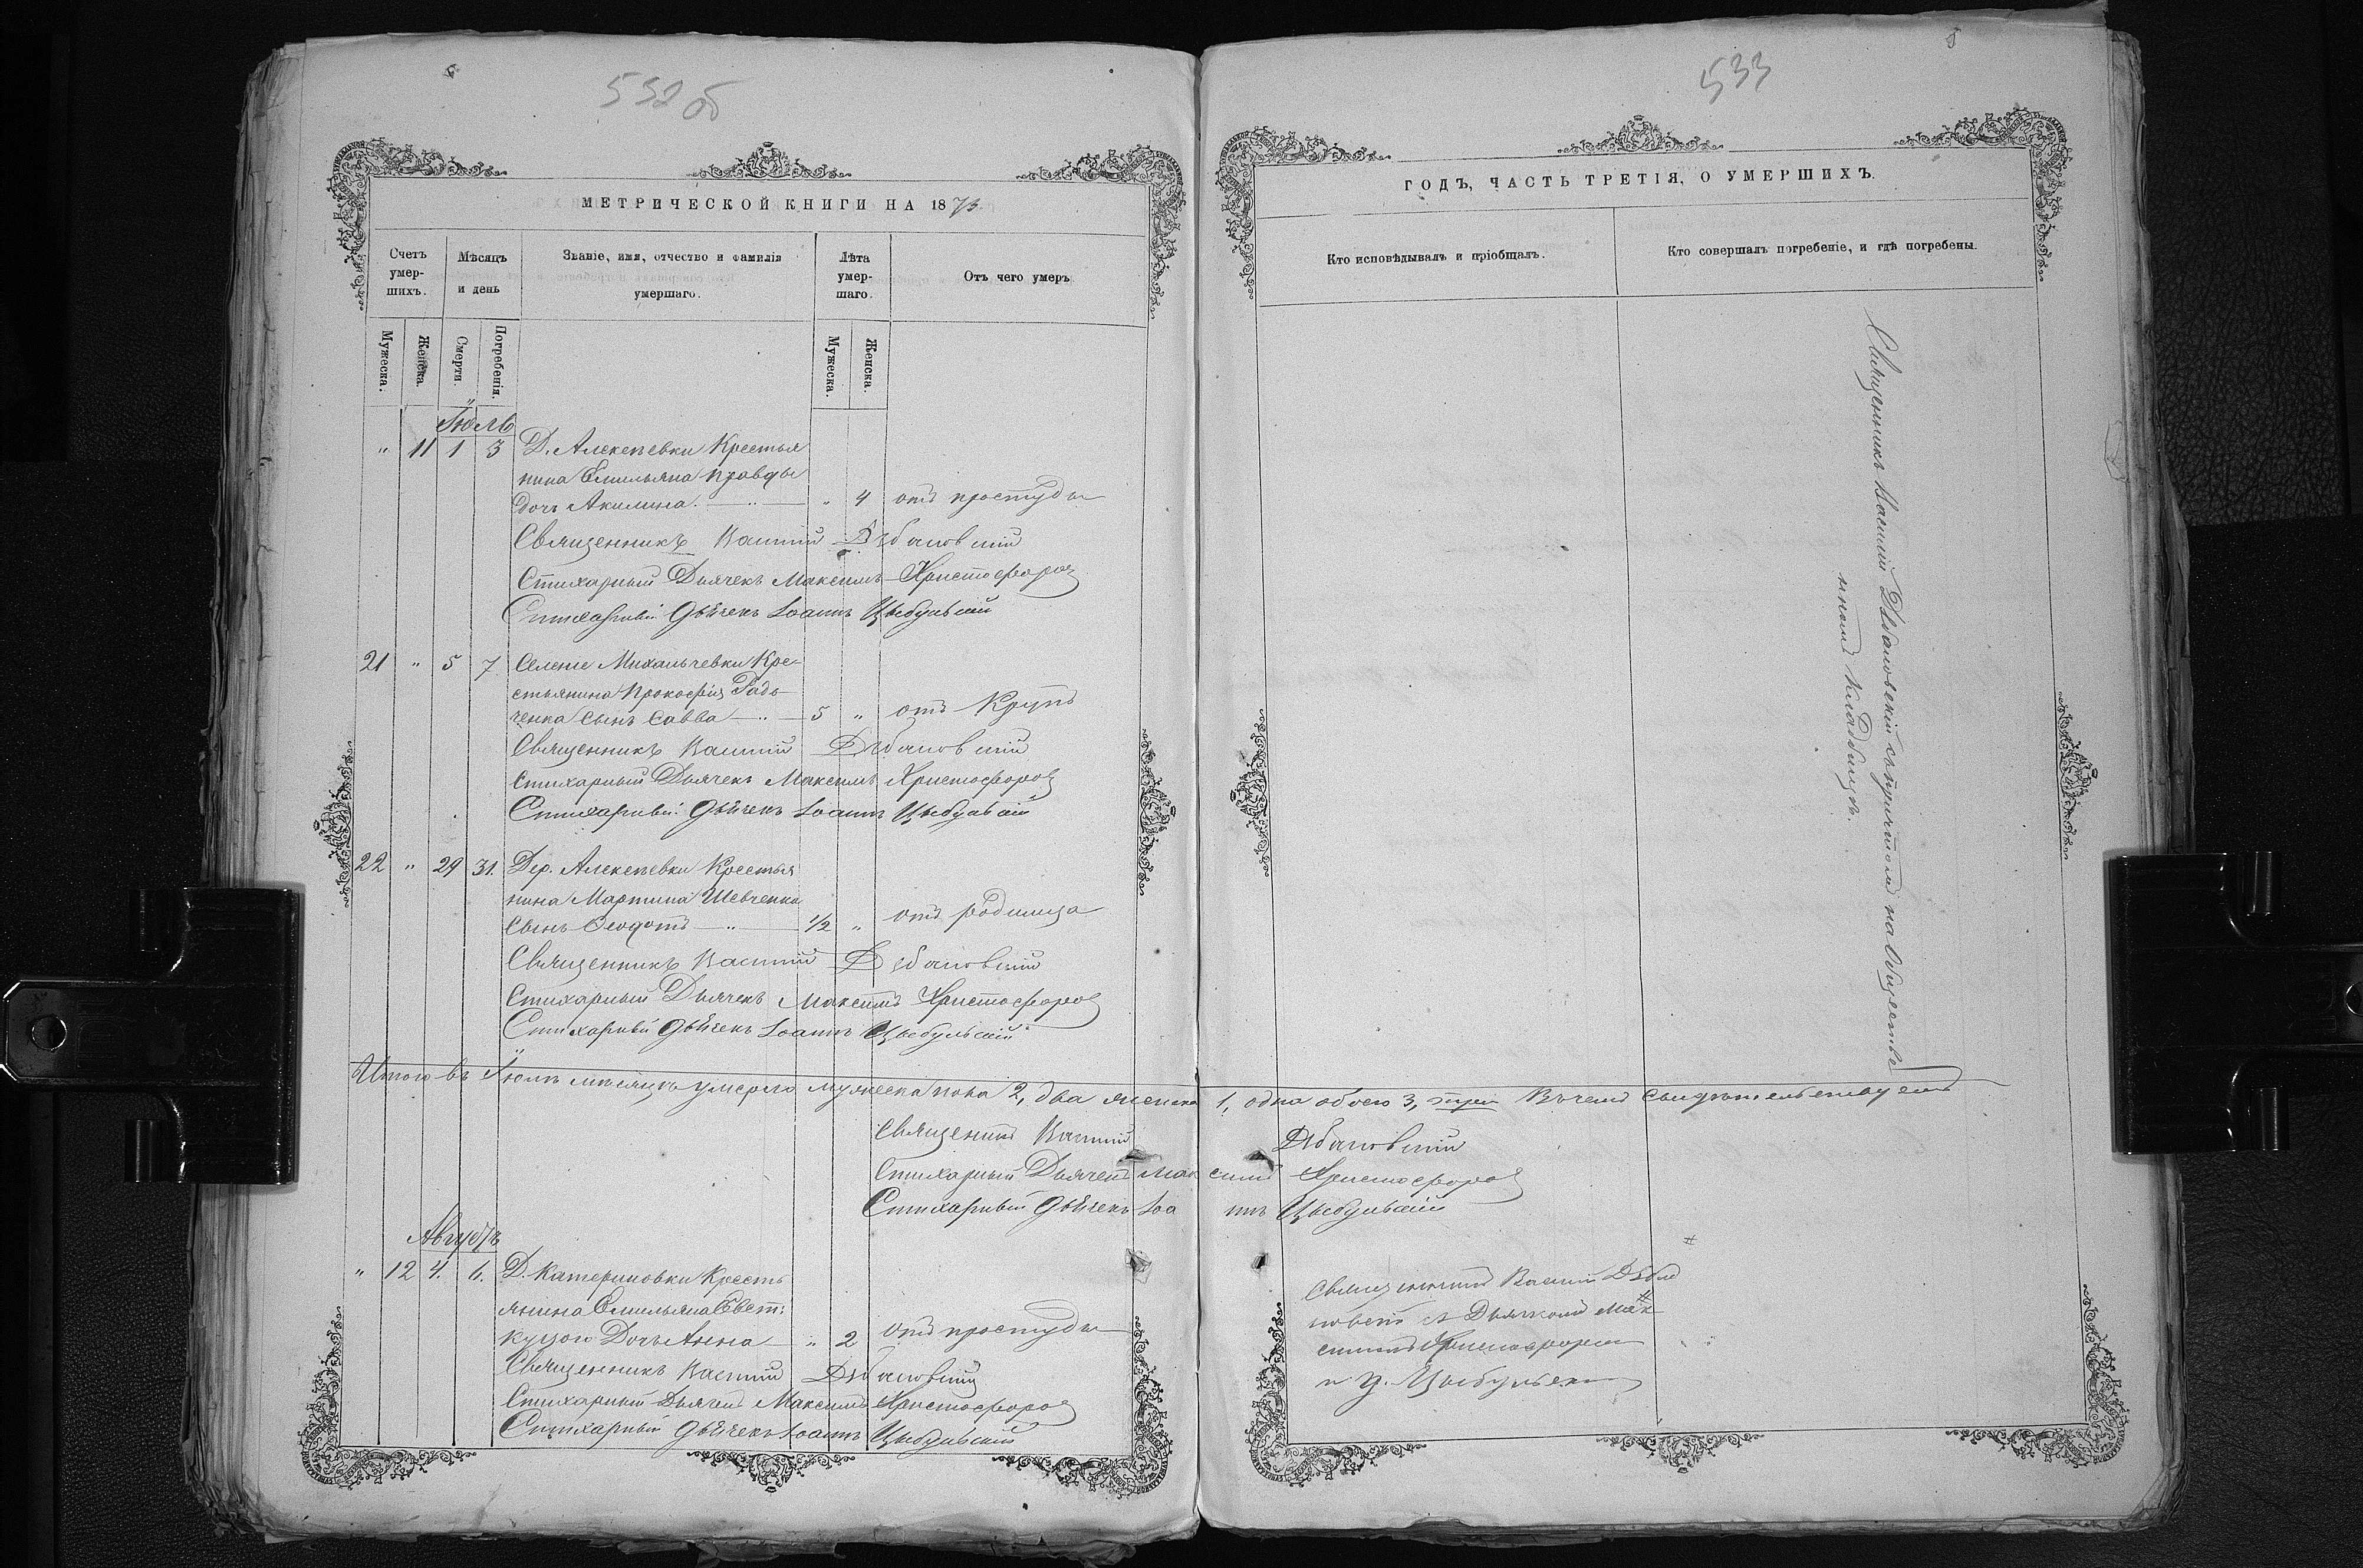 532 об
МЕТРИЧЕСКОЙ КНИГИ НА 1873.
Счетъ умер-шихъ.
Мѣсяцъ и день
Званіе, имя, отчество и фамилія умершаго.
Лѣта умер-шаго.
Отъ чего умеръ
Мужеска.
Женска.
Смерти.
Погребенія.
Мужеска.
Женска.
Іюль
" 11 1 3 Д. Алексѣевки Крестья
нина Емельяна Правды
дочь Акилина. " 4 отъ простуды
Священникъ Василій Дѣбановскій
Стихарный Дьячекъ Максимъ Христофоровъ
Стихарный дьячекъ Іоаннъ Цыбульскій
21 " 5 7. Селеніе Михальчевки Кре-
стьянина Прокофія Радь-
ченка сынъ Савва 5 " отъ Крупъ
Священникъ Василій Дѣбановскій
Стихарный Дьячекъ Максимъ Христофоровъ
Стихарный дьячекъ Іоаннъ Цыбульскій
22 " 29 31. Дер. Алексѣевки Крестья
нина Мартина Шевченка
сынъ Ѳеодотъ 1/2 " отъ родимца
Священникъ Василій Дѣбановскій
Стихарный Дьячекъ Максимъ Христофоровъ
Стихарный дьячекъ Іоаннъ Цыбульскій
Итого въ Іюлѣ мѣсяцѣ умерло мужеска пола 2, два женска 1, одна обоего 3, три въ чемъ свидѣтельствуемъ
Священникъ Василій Дѣбановскій
Стихарный Дьячекъ Максимъ Христофоровъ
Стихарный дьячекъ Іоаннъ Цыбульскій
Августъ
" 12 4. 6. Д. Катериновки Кресть
янина Емельяна
Дочь Анна " 2 отъ простуды
Священникъ Василій Дѣбановскій
Стихарный Дьячекъ Максимъ Христофоровъ
Стихарный дьячекъ Іоаннъ Цыбульскій
533
ГОДЪ, ЧАСТЬ ТРЕТІЯ, О УМЕРШИХЪ.
Кто исповѣдывалъ и пріобщалъ.
Кто совершалъ погребеніе, и гдѣ погребены.
Священникъ Василій Дѣбановскій съ причтомъ на обществе
нномъ кладбищѣ.
Священникъ Василій Дѣба
новскій съ Дьячкомъ Мак
симомъ Христофоровымъ
и Цыбульскимъ